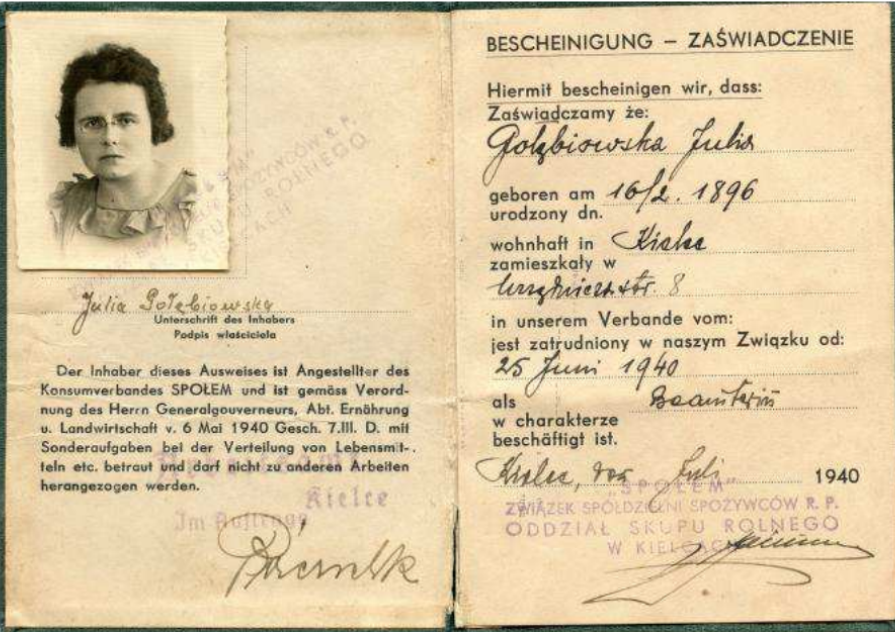 Julia Gołębiowska
Unterschrift des Inhabers
Podpis właściciela
Der Inhaber dieses Ausweises ist Angestellter des
Konsumverbandes SPOŁEM und ist gemäss Verord-
nung des Herrn Generalgouverneurs, Abt. Ernährung
u. Landwirtschaft v. 6 Mai 1940 Gesch. 7.III. D. mit
Sonderaufgaben bei der Verteilung von Lebensmit-
teln etc. betraut und darf nicht zu anderen Arbeiten
herangezogen werden.
Kielce
Im Auftrage
BESCHEINIGUNG – ZAŚWIADCZENIE
Hiermit bescheinigen wir, dass:
Zaświadczamy że:
Gołębiowska Julia
geboren am 16/2. 1896
urodzony dn.
wohnhaft in Kielce
zamieszkały w
str. 8
in unserem Verbande vom:
jest zatrudniony w naszym Związku od:
25 Juni 1940
als Beamterin
w charakterze
beschäftigt ist.
Kielce, den Juli 1940
„SPOŁEM"
ZWIĄZEK SPÓŁDZIELNI SPOŻYWCÓW R. P.
ODDZIAŁ SKUPU ROLNEGO
W KIELCACH